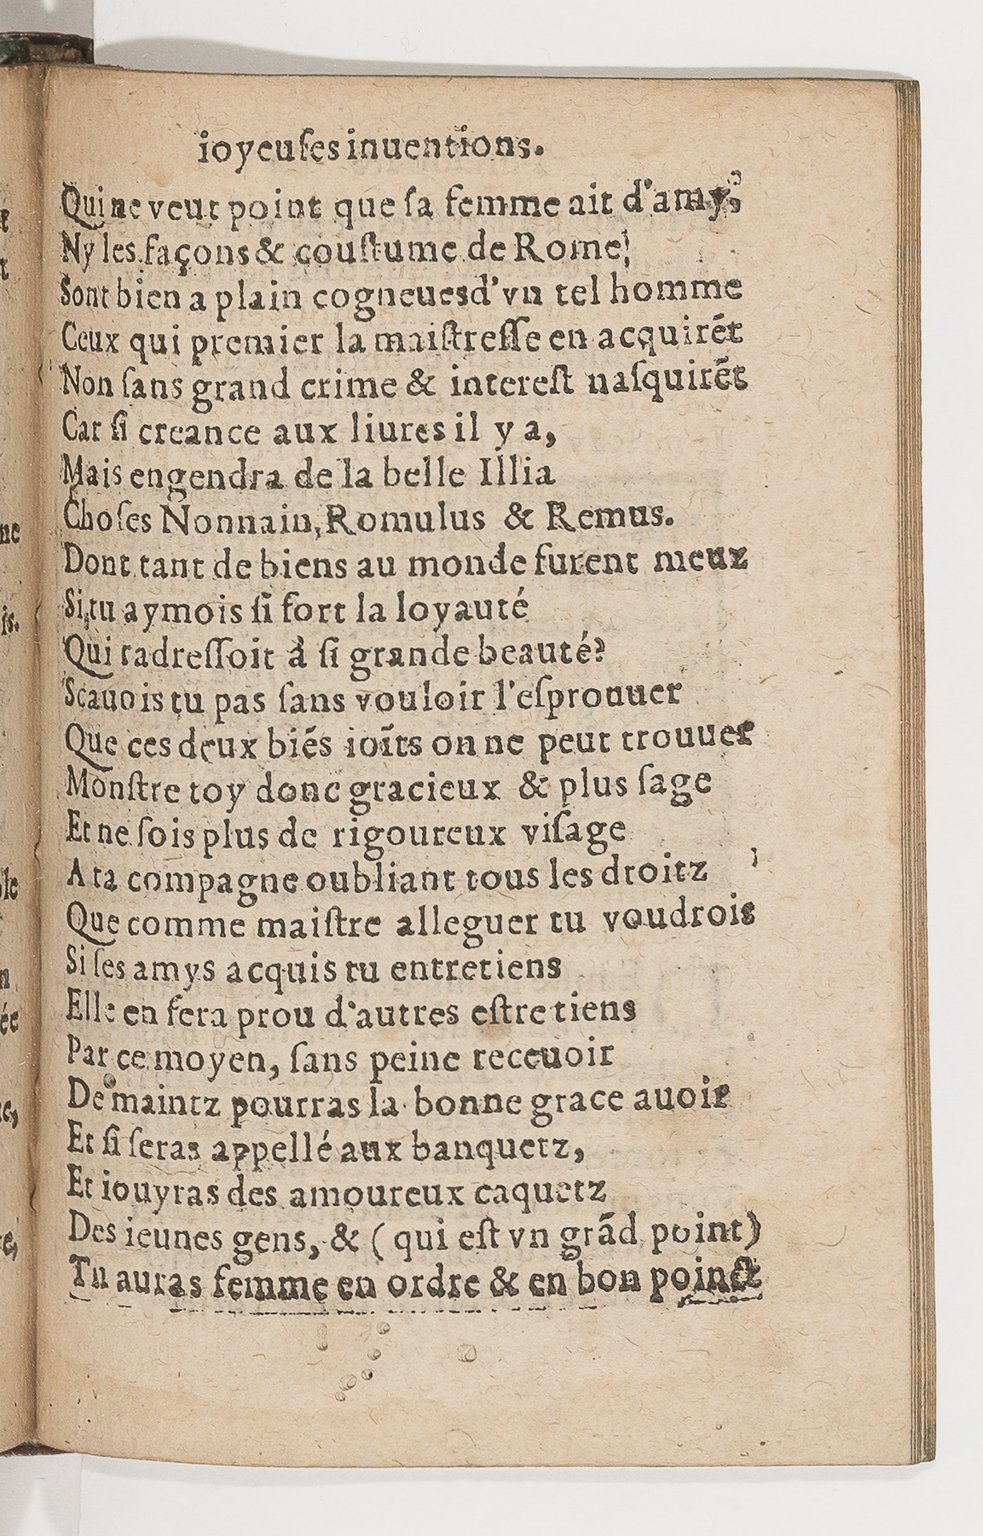 ioyeuſes inuentions.
Qui ne veut point que ſa femme ait d'amy,
Ny les façons & couſtume de Rome,
Sont bien a plain cogneuesd'vn tel homme
Ceux qui premier la maiſtreſſe en acquirẽt
Non ſans grand crime & intereſt naſquirẽt
Car ſi creance aux liures il y a,
Mais engendra de la belle Illia
Choſes Nonnain, Romulus & Remus.
Dont tant de biens au monde furent meuz
Si tu aymois ſi fort la loyauté
Qui tadreſſoit à ſi grande beauté?
Scauois tu pas ſans vouloir l'eſprouuer
Que ces deux biẽs ioĩts on ne peut trouuer
Monſtre toy donc gracieux & plus ſage
Et ne ſois plus de rigoureux viſage
A ta compagne oubliant tous les droitz
Que comme maiſtre alleguer tu voudrois
Si ſes amys acquis tu entretiens
Elle en fera prou d'autres eſtre tiens
Par ce moyen, ſans peine receuoir
De maintz pourras la bonne grace auoir
Et ſi ſeras appellé aux banquetz,
Et iouyras des amoureux caquetz
Des ieunes gens, & (qui eſt vn grãd point)
Tu auras femme en ordre & en bon poinct